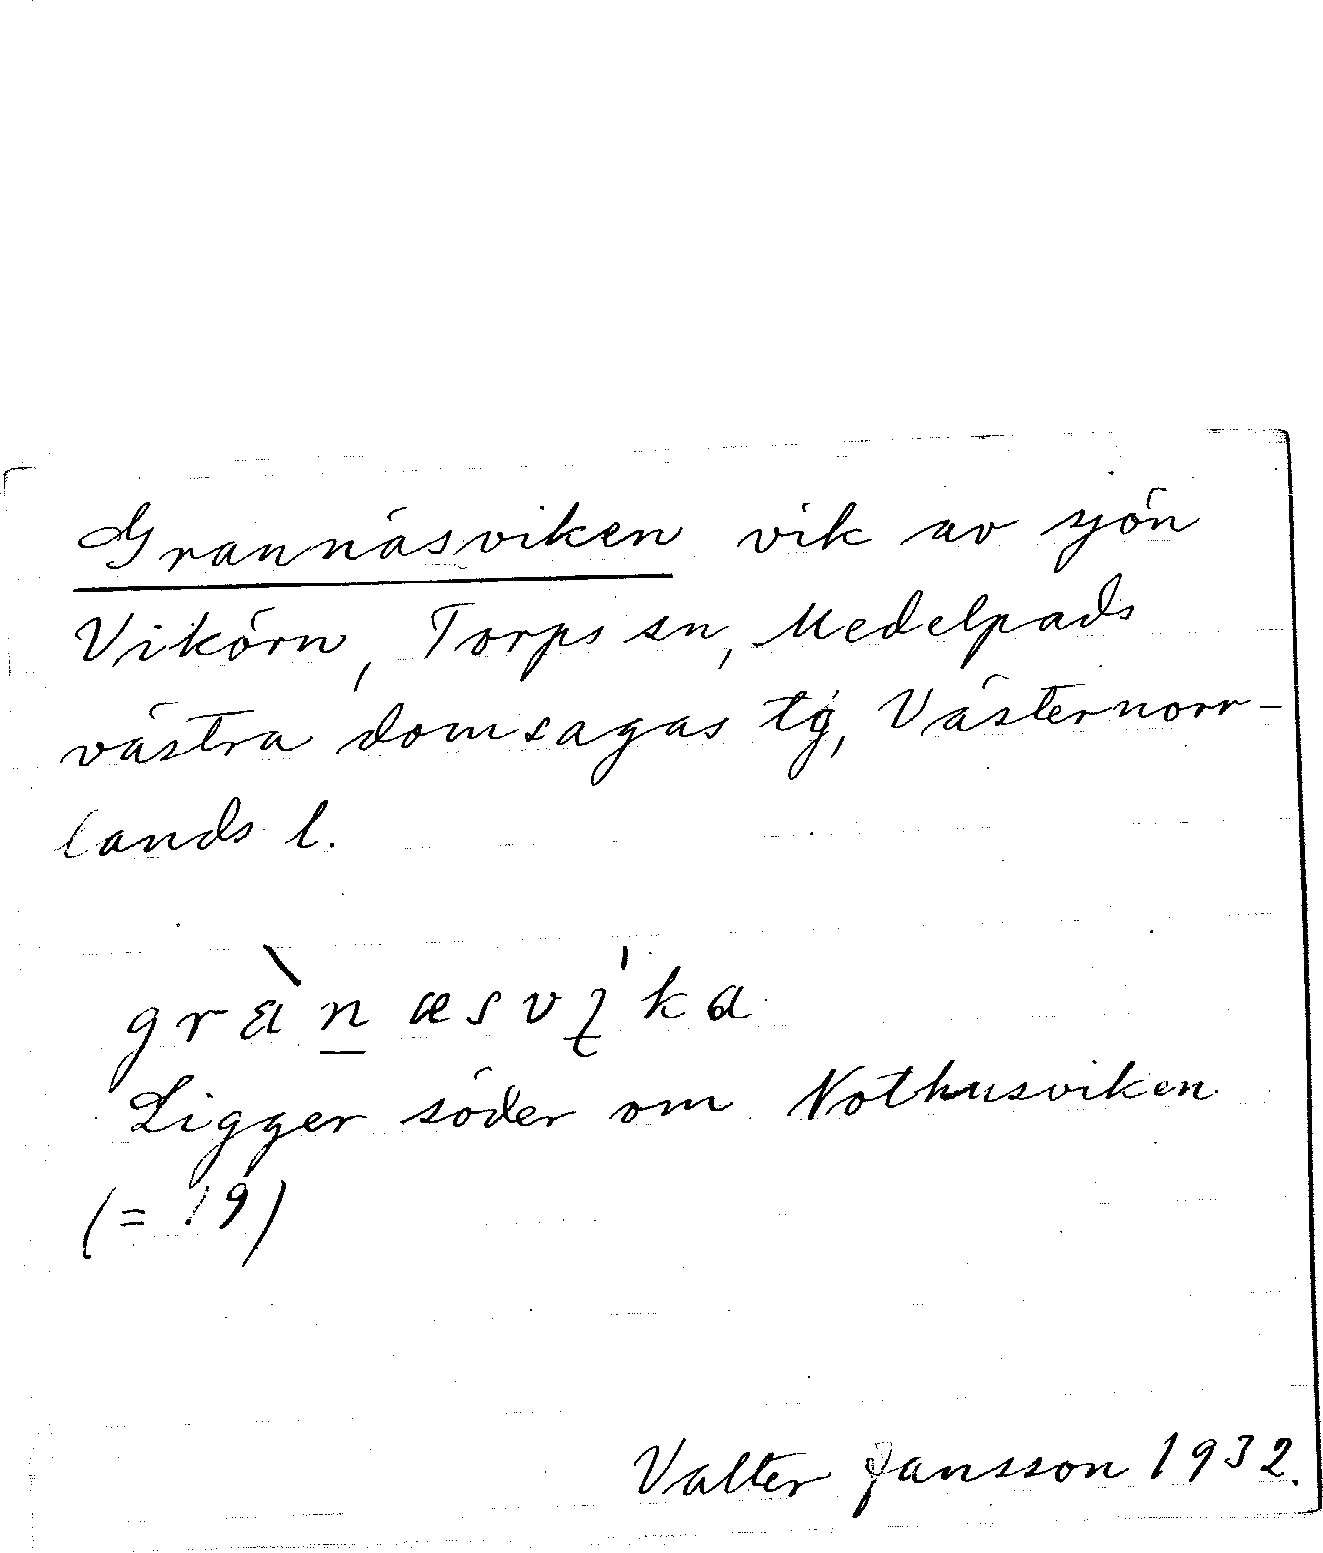 Grannäsviken vik av sjön
Vikörn, Torps sn, Medelpads
västra domsagas tg, Västernorr-
lands l.
grànæsvi̱ka
Ligger söder om Nothusviken
(= 19)
Valter Jansson 1932.